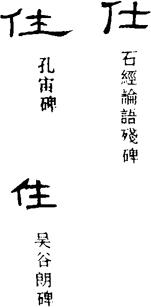 仕
石經論語殘碑
住
孔宙碑
住
吴谷朗碑